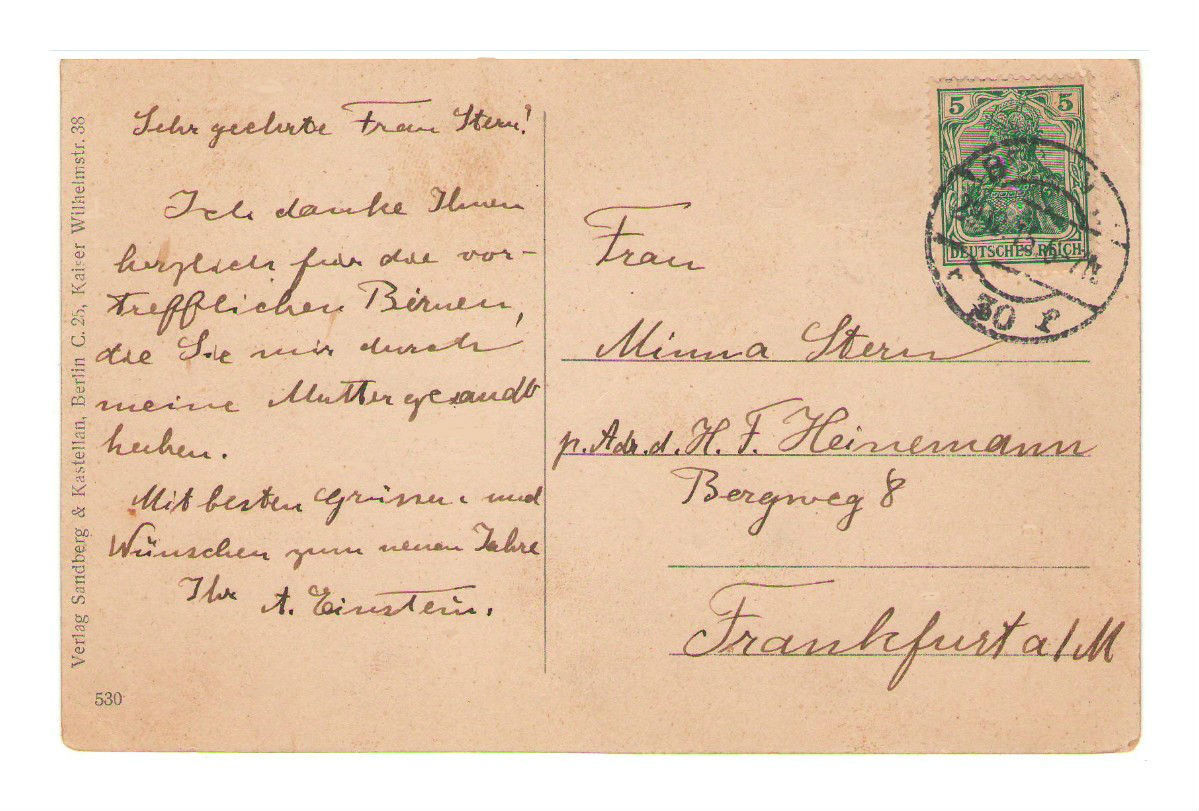 Verlag Sandberg & Kastellan, Berlin C. 25, Kaiser Wilhelmstr. 38
530
Sehr geehrte Frau Stern!
Ich danke Ihnen
herzlich für die vor-
trefflichen Birnen,
die Sie mir durch
meine Mutter gesandt
haben.
Mit besten Grüssen und
Wünschen zum neuen Jahre
Ihr A. Einstein.
5 5
DEUTSCHES REICH
30 f
Frau
Minna Stern
p. Adr. d. H. F. Heinemann
Bergweg 8
Frankfurt a/M